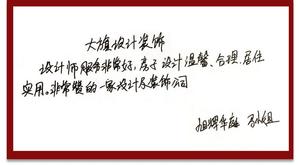 大旗设计装饰
设计师服务非常好，房子设计温馨、合理、居住
实用。非常赞的一家设计及装饰公司
旭辉华庭